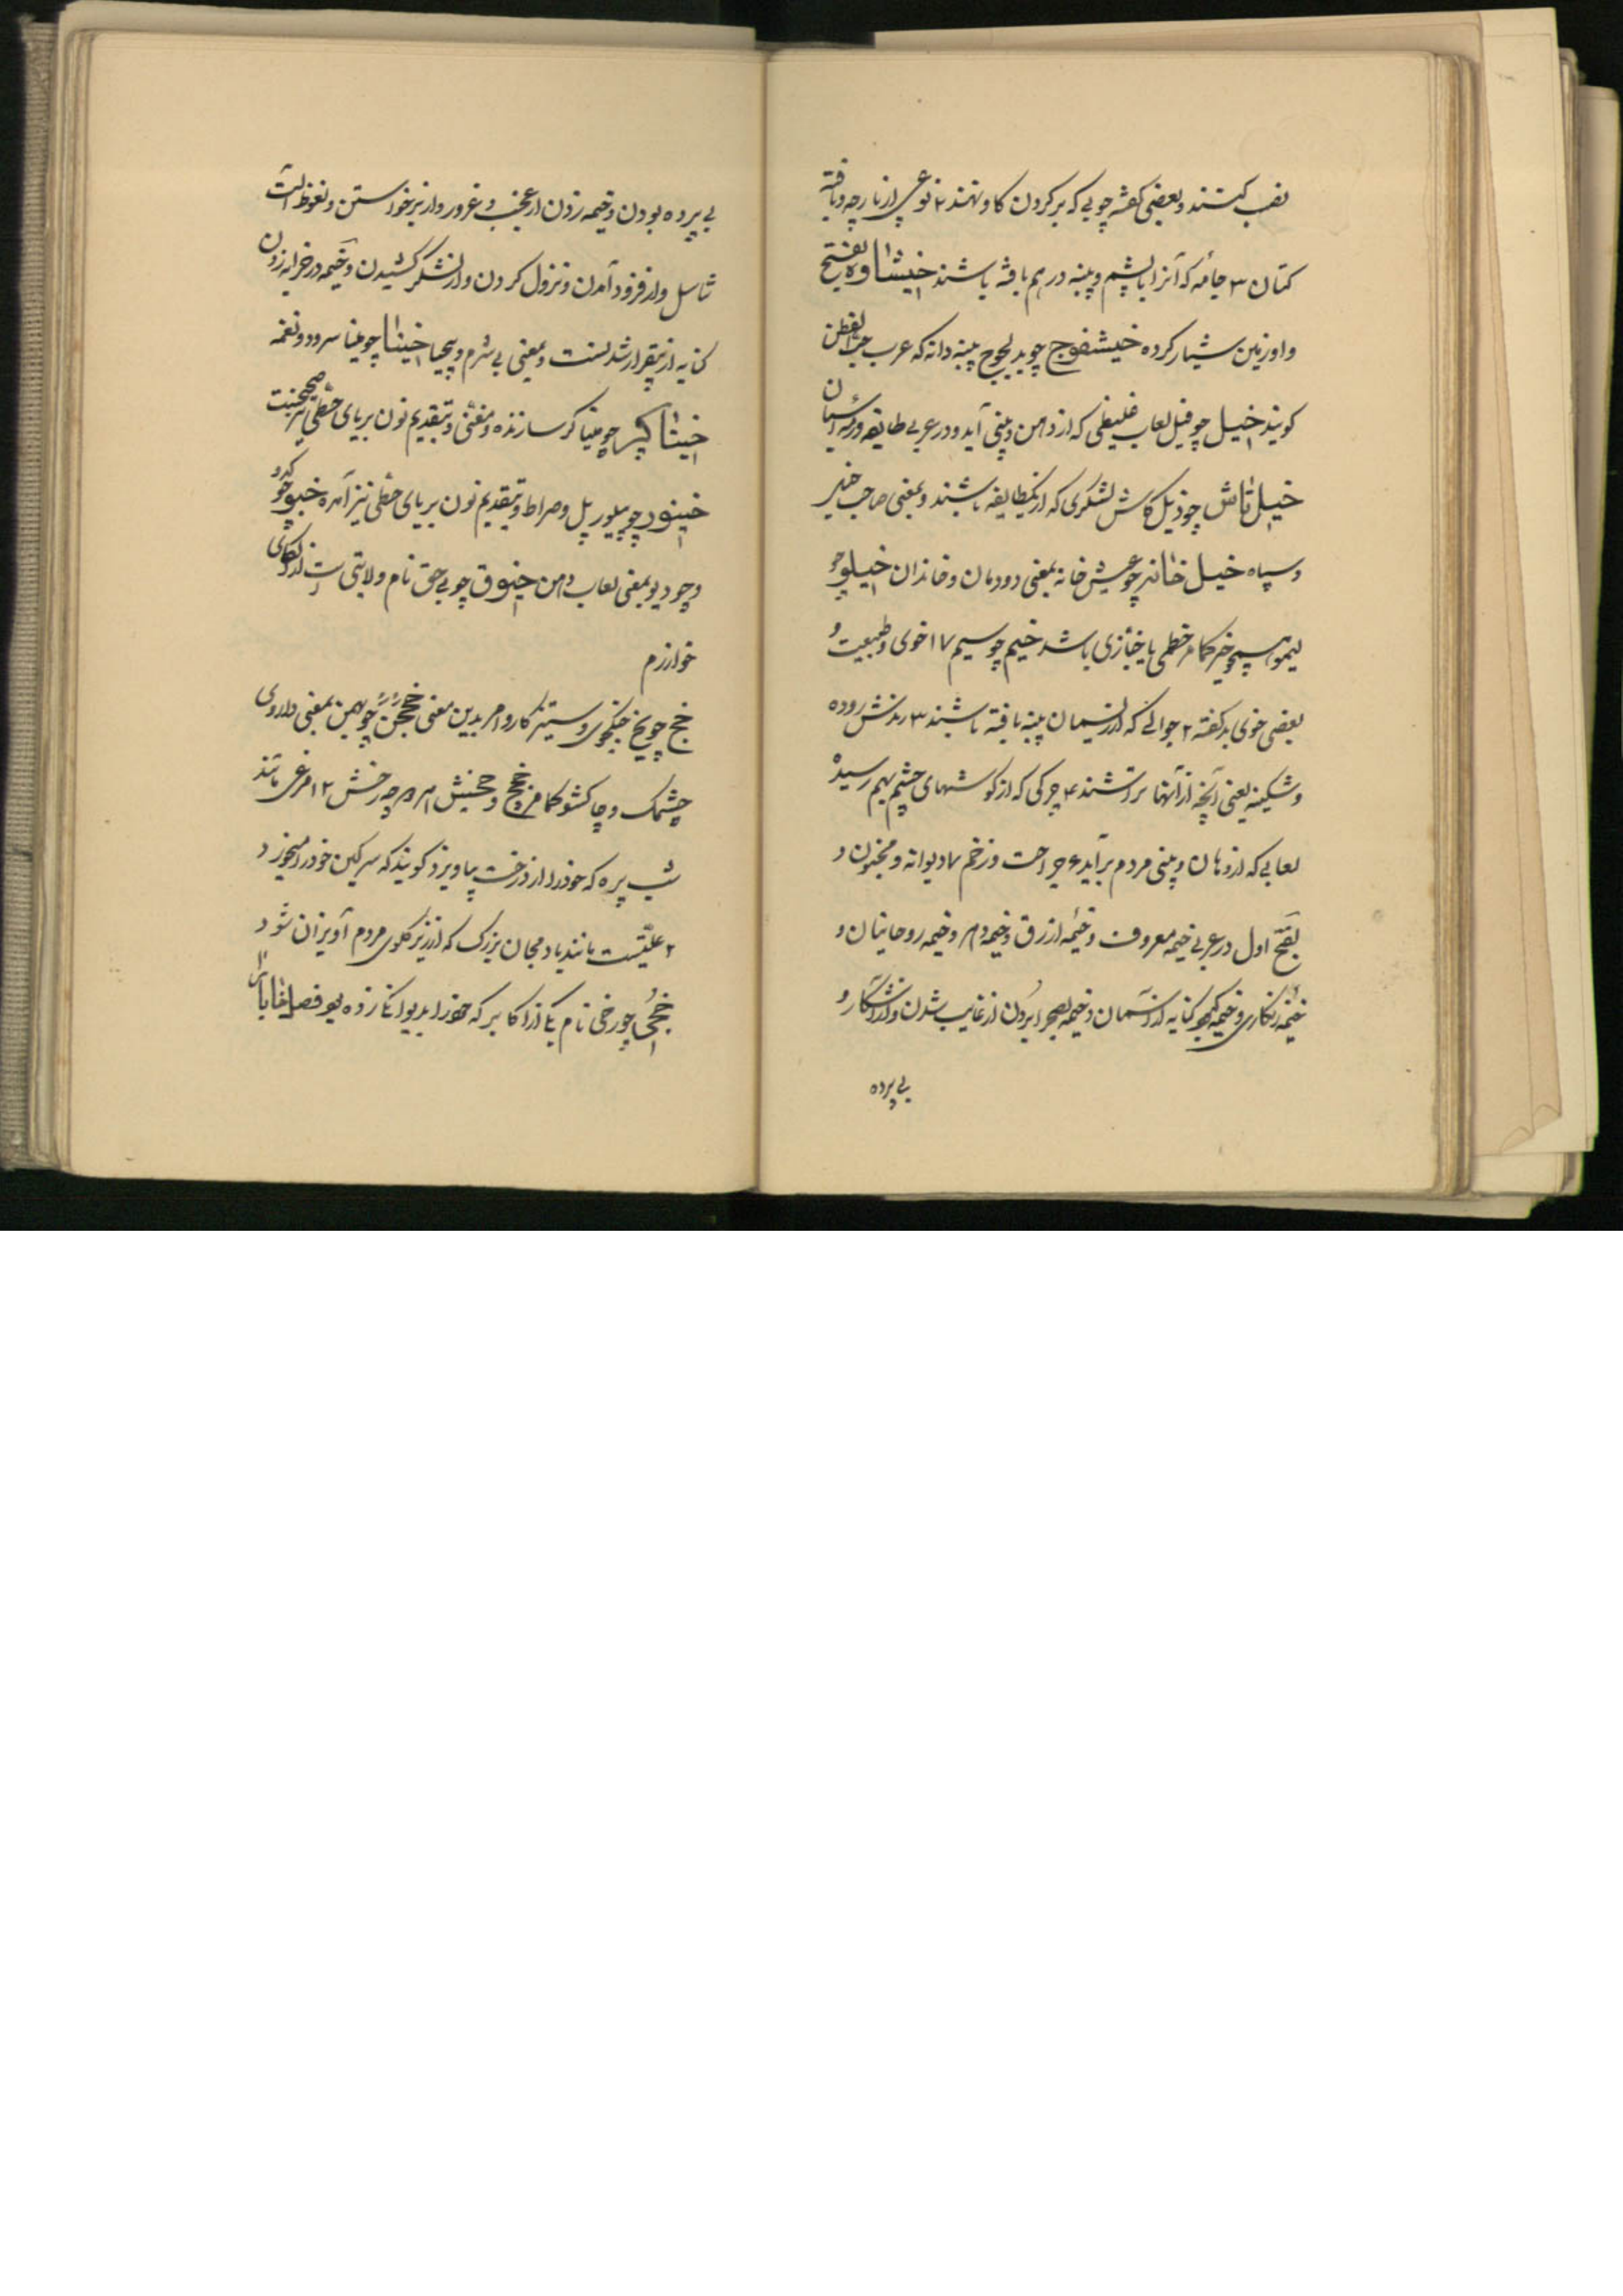 نصب کنند و بعضی گفته چوبی که بر گردن گاو نهند ۲ نوعی از پارچه و بافته
کتان ۳ جامه که آنرا با پشم و پنبه درهم بافته باشند خیشاوه بفتح
و او زمین شیار کرده خیشفوج چو بد لجوج پنبه دانه که عرب حب القطن
گویند خیل چو فیل لعاب غلیظی که از دهن و بینی آید و در عربی طایفه و رمه اسپان
خیل تاش چو ذیل کاش لشکری که از یکطایفه باشند و بمعنی صاحب خیر
و سپاه خیل خانه چو عیش خانه بمعنی دودمان و خاندان خیلو چو
لیمو خطمی یا خبازی باشد خیم چو سیم ۱۷ خوی و طبیعت و
بعضی خوی بد گفته ۲ جوالی که از ریسمان پنبه بافته باشند ۳ رندش روده
و شکنبه یعنی آنچه از آنها تراشند ۴ چرکی که از گوشهای چشم بهم رسیده
لعابی که از دهان و بینی مردم برآید ۶ جراحت و زخم ۷ دیوانه و مجنون و
بفتح اول در عربی خیمه معروف و خیمه ازرق و خیمه دهر و خیمه روحانیان و
خیمه زنگاری و خیمه کبود کنایه از آسمان و خیمه بصحرا بردن از غایب شدن و از آشکار و
بی پرده
بی پرده بودن و خیمه زدن از عجب و غرور و از برخواستن و نعوظ آلت
تناسل و از فرود آمدن و نزول کردن و از لشکر کشیدن و خیمه در خرابه زدن
کنایه از بیقرار شدنست و بمعنی بی شرم و بیحیا خینا چو مینا سرود و نغمه
خیناگر چو میناگر سازنده و مغنی و بتقدیم نون بر یای حطی نیز صحیحست
خینور چو پیلور پل و صراط و بتقدیم نون بر یای حطی نیز آمده خیو چو کدو
و چو دیو بمعنی لعاب دهن خیوق چو بی حق نام ولایتی است از
خوارزم
خج چو یخ جنگجوی و ستیزه کار و امر بدین معنی خججن چو بهمن بمعنی داروی
چشمک و چاکشو کما مر خجج و خجش چو رخش ۱۲ مرغی مانند
شب پره که خود را از درخت بیاویزد گویند که سرگین خود را میخورد
۲ علتیست مانند بادمجان بزرگ که از زیر گلوی مردم آویزان شود
خجی چو رخی نام یکی از اکابر که خود را بدیوانگی زده بود فصل